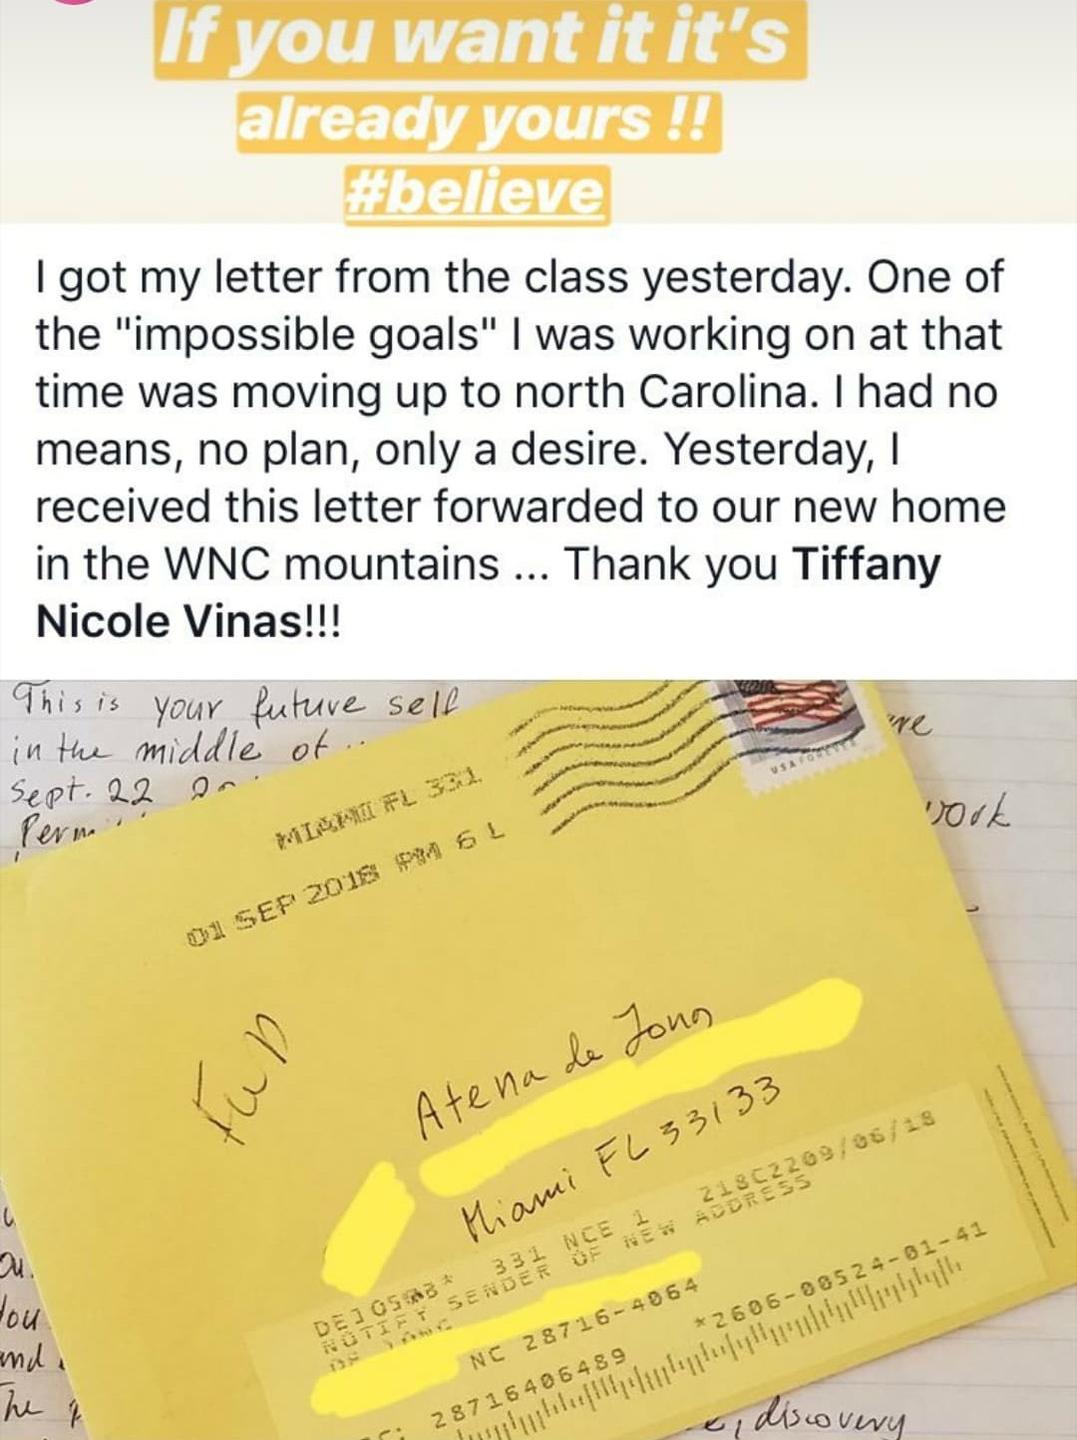 If you want it it's
already yours !!
#believe
I got my letter from the class yesterday. One of
the "impossible goals" I was working on at that
time was moving up to north Carolina. I had no
means, no plan, only a desire. Yesterday, I
received this letter forwarded to our new home
in the WNC mountains ... Thank you Tiffany
Nicole Vinas!!!
This is your future self
in the middle of
Sept. 22
work
USA FOREVER
MIAMI FL 331
01 SEP 2018 PM 6 L
Atena de Jong
Miami FL 33133
331 NCE 1 218C2209/06/18
NOTIFY SENDER OF NEW ADDRESS
NC 28716-4064
28716406489 *2606-00524-01-41
You
and
The
discovery